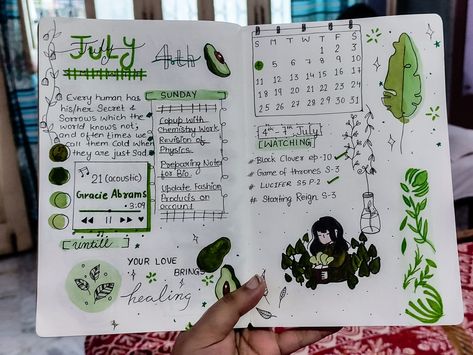 July
July 4th
Every human has
his/her Secret &
Sorrows which the
world knows not,
and often times we
call them Cold when
they are just Sad.
21 (acoustic)
Gracie Abrams
3:09
untill
SUNDAY
Copup with
Chemistry Work
Revision of
Physics
Preparing Notes
for Bio.
Update Fashion
Products on
account
YOUR LOVE
BRINGS
healing
S M T W T F S
1 2 3
4 5 6 7 8 9 10
11 12 13 14 15 16 17
18 19 20 21 22 23 24
25 26 27 28 29 30 31
4th - 7th July!
[WATCHING
* Black Clover ep-10 ✓
# Game of thrones S-3
# LUCIFER S5 P-2 ✓
# Starting Reign S-3